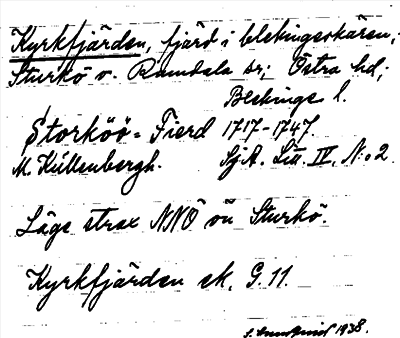 Kyrkfjärden, fjärd i blekingeskären,
Sturkö o. Ramdala sr; Östra hd;
Blekinge l.
Storköö-Fierd 1717-1747.
M. Küllenbergh. SjA. Litt. IV, N:o 2
Läge strax NNÖ on Sturkö.
Kyrkfjärden ek. G. 11.
1938.